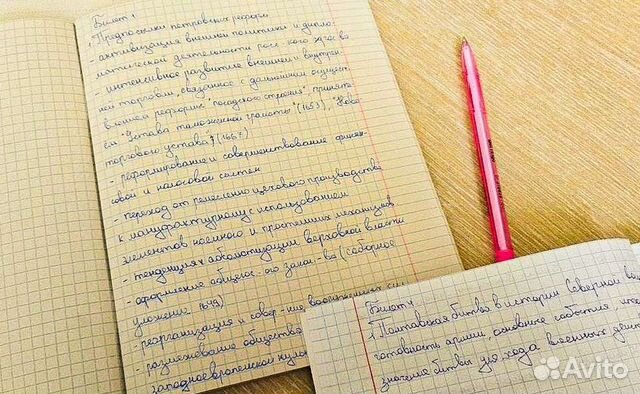 Билет 1
1. Предпосылки петровских реформ
- активизация внешней политики и дипло-
матической деятельности росс-кого гос-ва
- интенсивное развитие внешней и внутрен-
ней торговли, связанное с дальнейшим осущест-
влением реформы "посадского строения", приняти-
ем "Устава таможенной грамоты" (1653), "Ново
торгового устава"; (1667)
- реформирование и совершенствование финан-
совой и налоговой систем
- переход от ремесленно цехового производства
к мануфактурному с использованием
элементов наемного и простейших механизмов
- тенденция к абсолютизации верховной власти
- оформление общегос-ого закон-ва (соборное
уложение 1649)
- реорганизация и совер-ние вооруженных сил
- размежевание общества
западноевропейской культ
Билет 4
1. Полтавская битва в истории Северной вой
готовность армии, основные события, ито
значение битвы для хода военных дейст
Avito